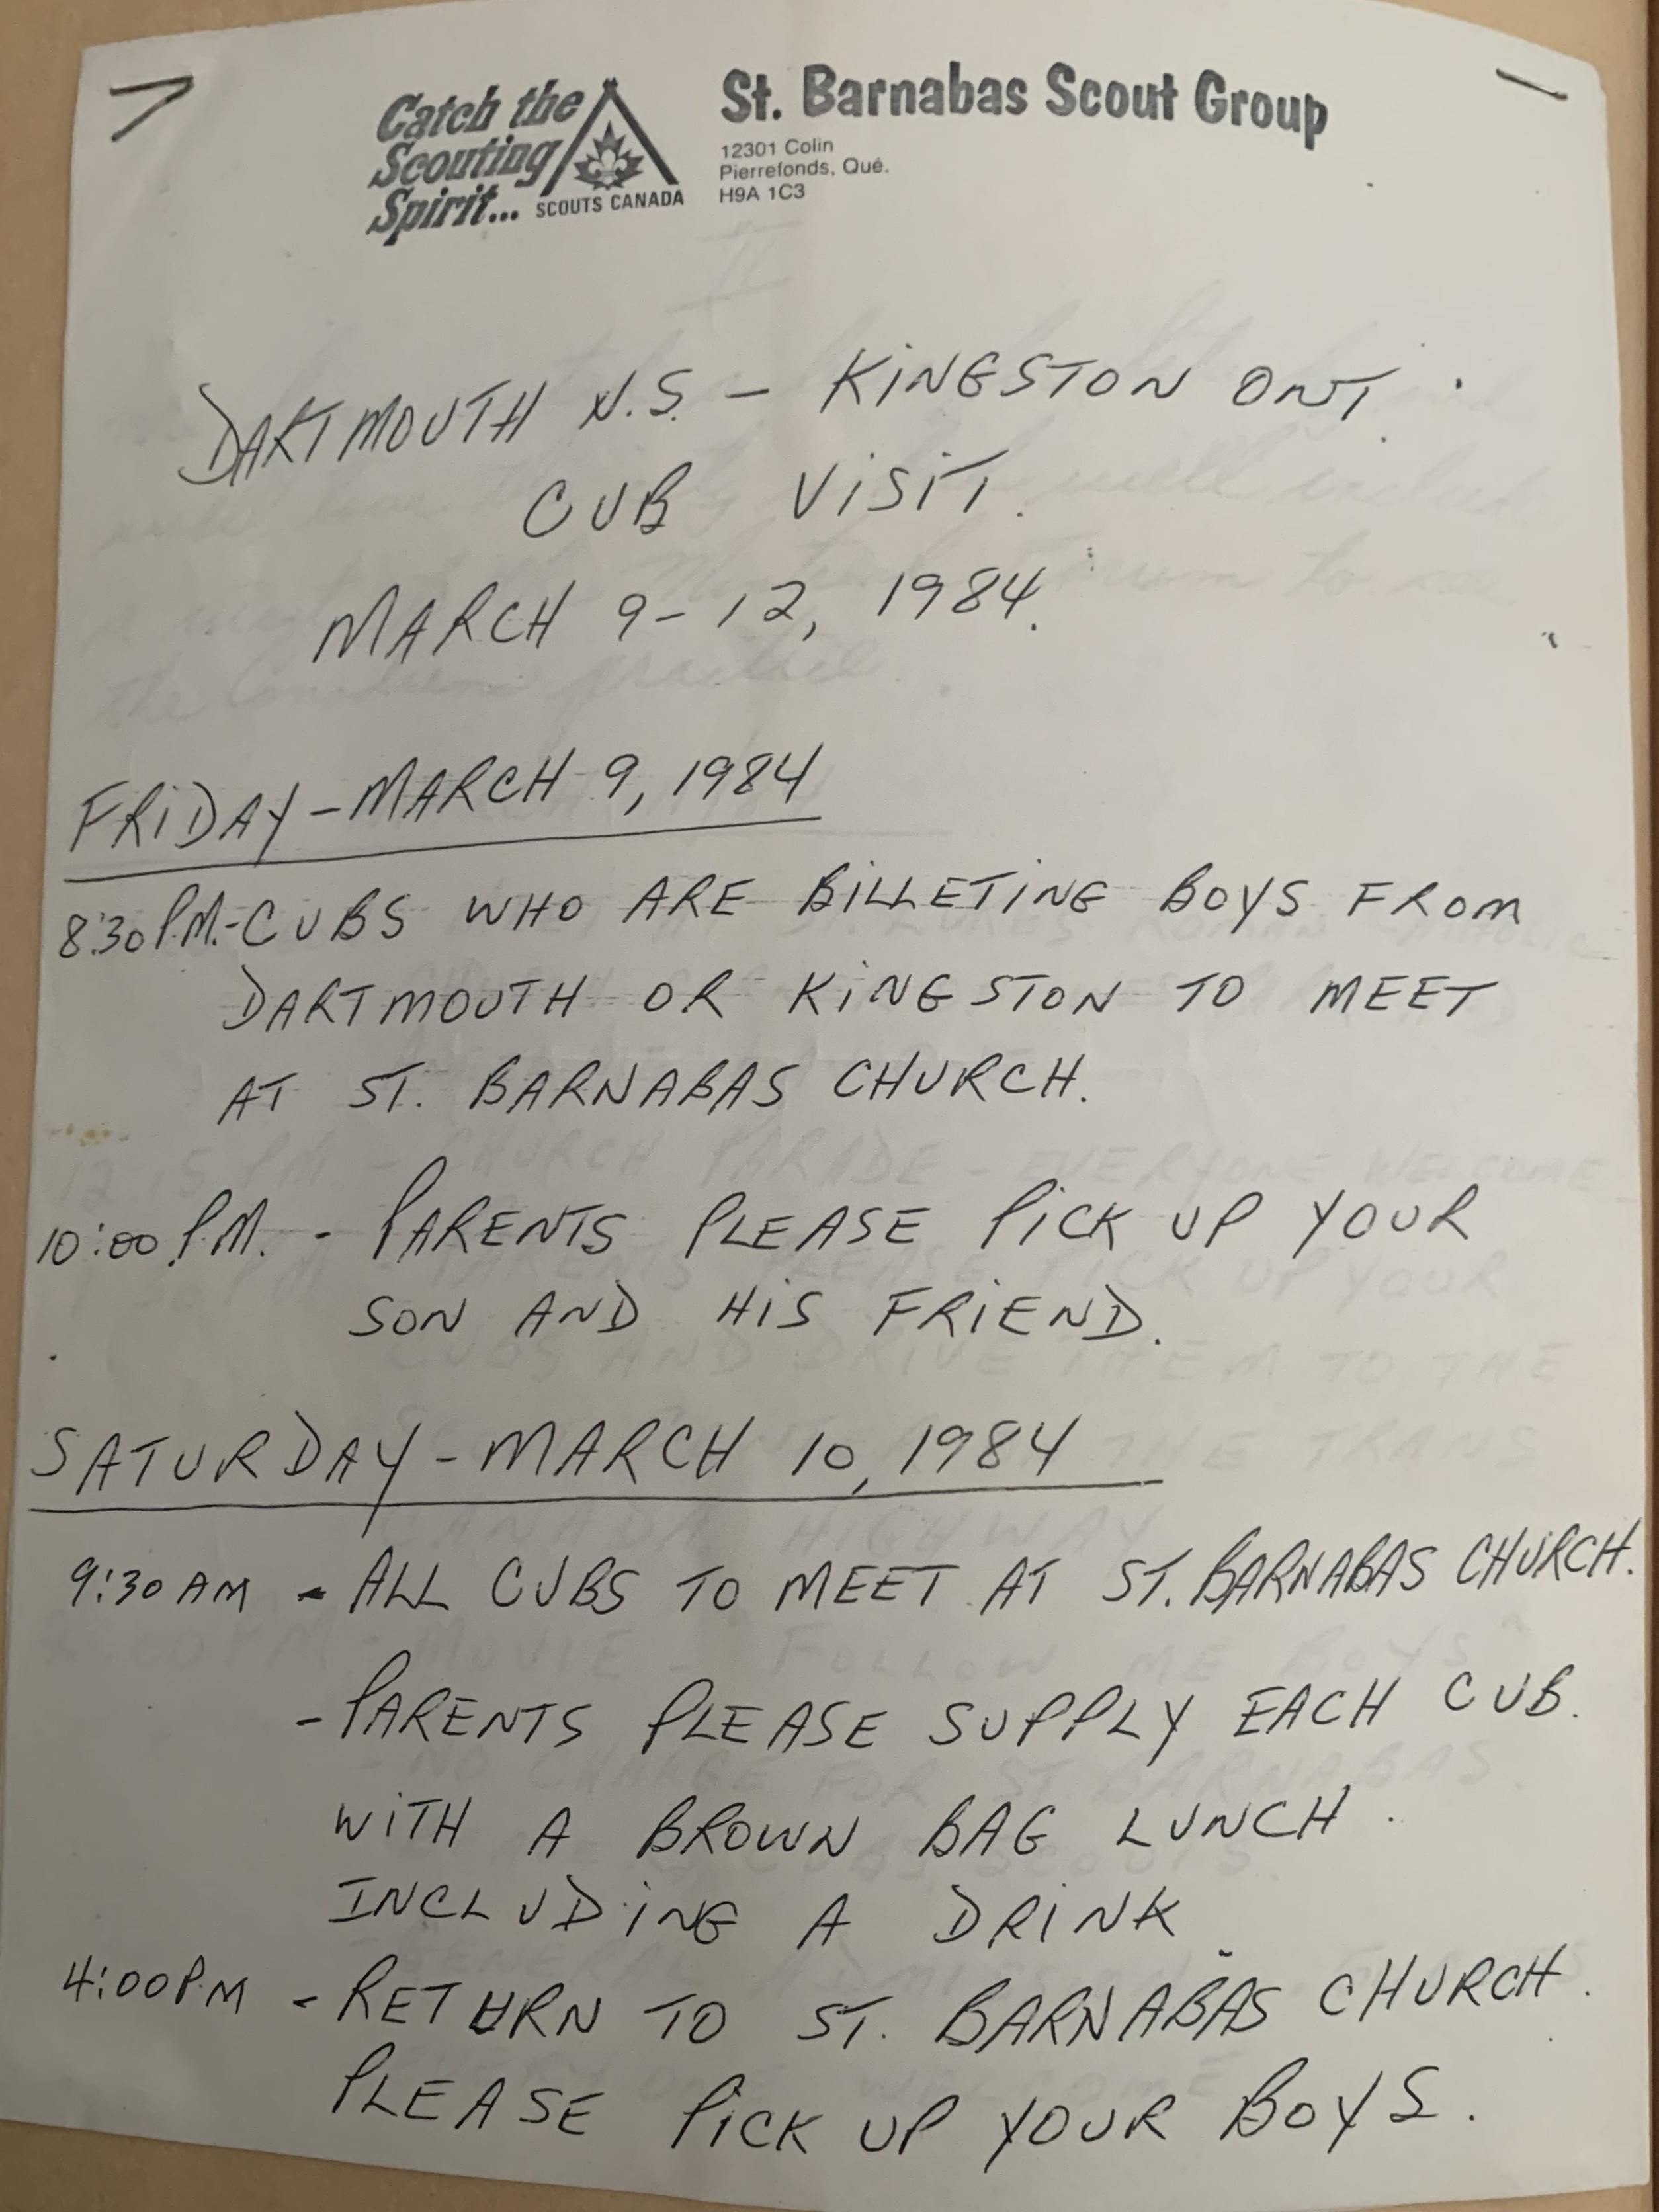 Catch the
Scouting
Spirit...
SCOUTS CANADA
St. Barnabas Scout Group
12301 Colin
Pierrefonds, Qué.
H9A 1C3
DARTMOUTH N.S. - KINGSTON ONT.
CUB VISIT.
MARCH 9-12, 1984.
FRIDAY - MARCH 9, 1984
8:30 P.M. - CUBS WHO ARE BILLETING BOYS FROM
DARTMOUTH OR KINGSTON TO MEET
AT ST. BARNABAS CHURCH.
10:00 P.M. - PARENTS PLEASE PICK UP YOUR
SON AND HIS FRIEND.
SATURDAY - MARCH 10, 1984
9:30 AM - ALL CUBS TO MEET AT ST. BARNABAS CHURCH.
- PARENTS PLEASE SUPPLY EACH CUB.
WITH A BROWN BAG LUNCH.
INCLUDING A DRINK.
4:00 P.M - RETURN TO ST. BARNABAS CHURCH.
PLEASE PICK UP YOUR BOYS.